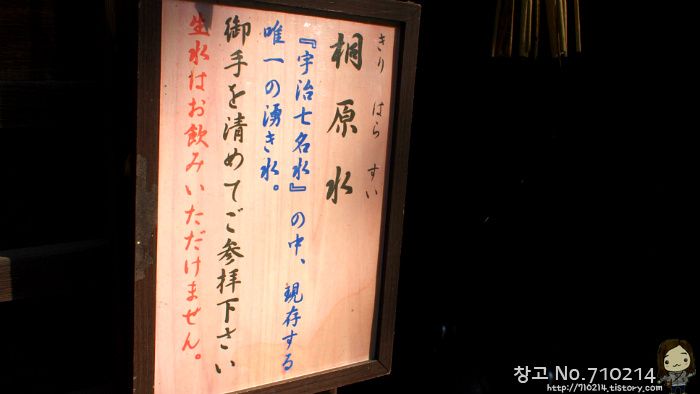 きり はら すい
桐原水
『宇治七名水』の中、現存する
唯一の湧き水。
御手を清めてご参拝下さい
生水はお飲みいただけません。
창고 No.710214
http://710214.tistory.com